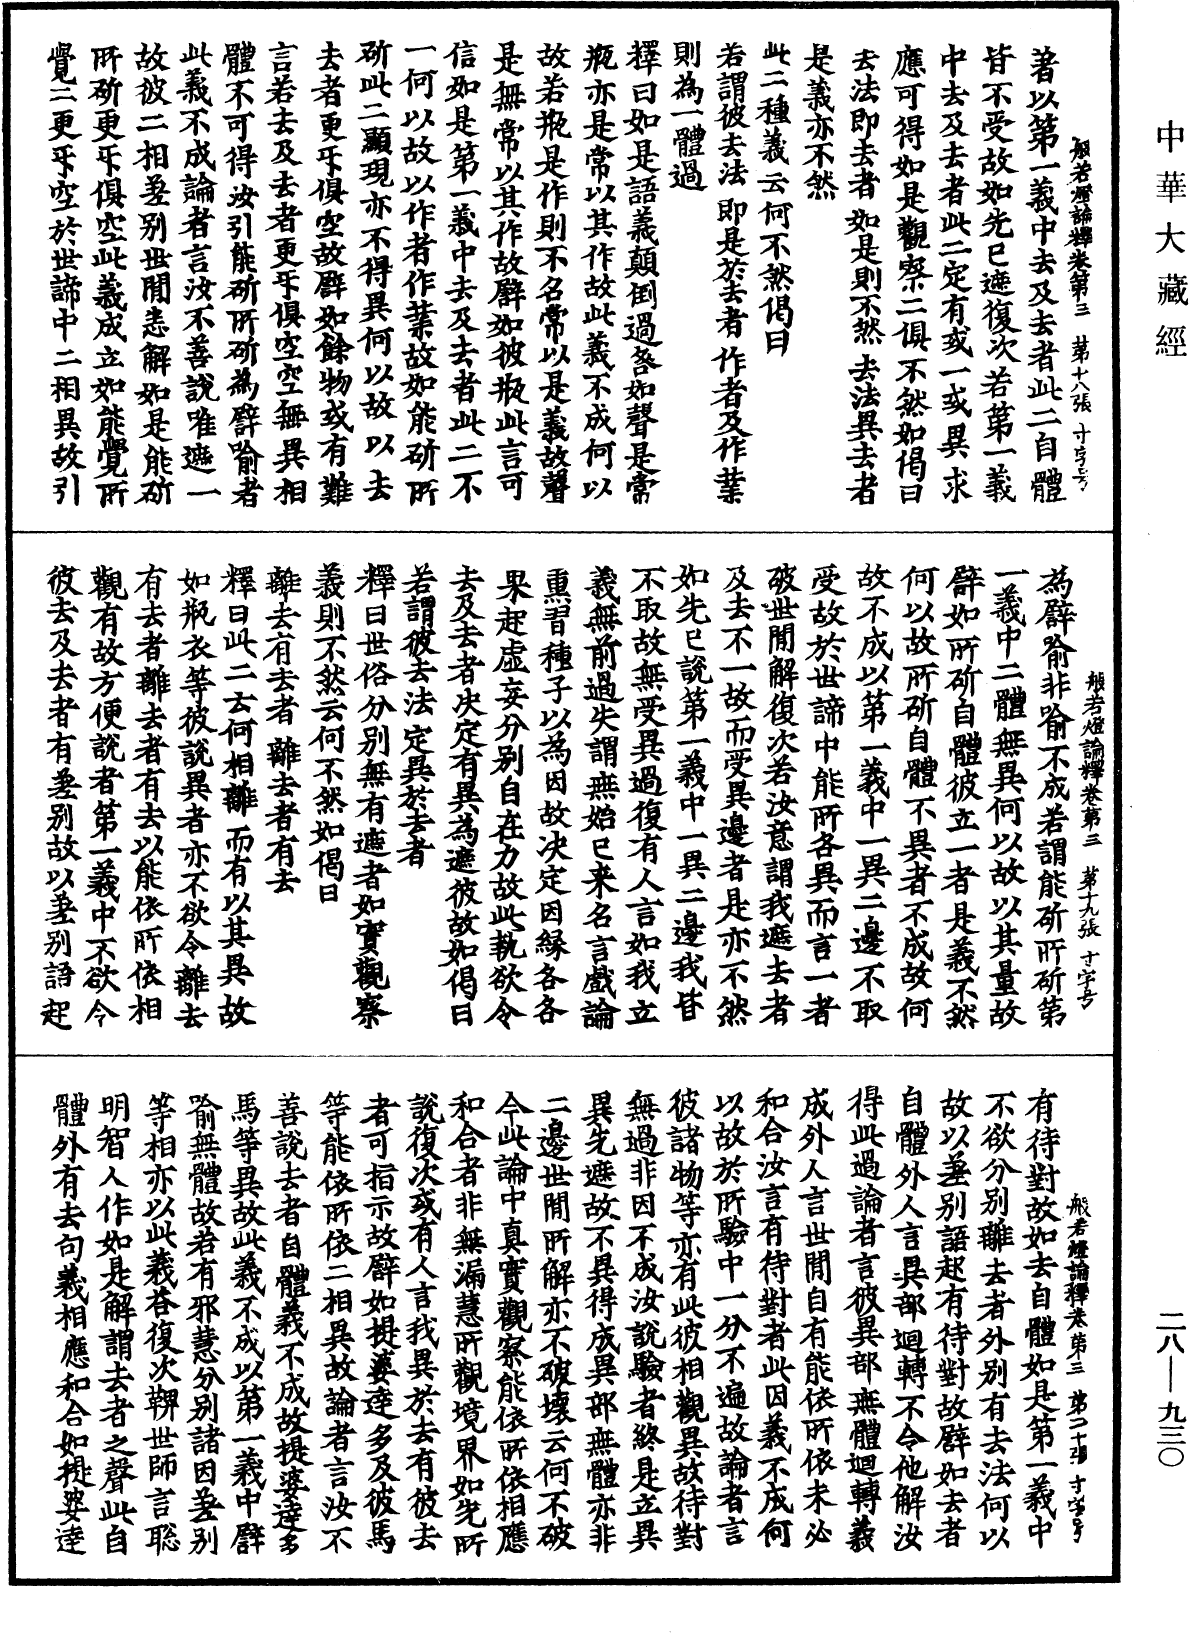 中華大藏經
般若燈論釋卷第三 第十八張 寸字号
著以第一義中去及去者此二自體
皆不受故如先已遮復次若第一義
中去及去者此二定有或一或異求
應可得如是觀察二俱不然如偈曰
去法即去者 如是則不然 去法異去者
是義亦不然
此二種義云何不然偈曰
若謂彼去法 即是於去者 作者及作業
則為一體過
釋曰如是語義顛倒過咎如聲是常
瓶亦是常以其作故此義不成何以
故若瓶是作則不名常以是義故聲
是無常以其作故譬如彼瓶此言可
信如是第一義中去及去者此二不
一何以故以作者作業故如能斫所
斫此二顯現亦不得異何以故以去
去者更互俱空故譬如餘物或有難
言若去及去者更互俱空空無異相
體不可得汝引能斫所斫為譬喻者
此義不成論者言汝不善說唯遮一
故彼二相差別世間悉解如是能斫
所斫更互俱空此義成立如能覺所
覺二更互空於世諦中二相異故引
般若燈論釋卷第三 第十九張 寸字号
為譬喻非喻不成若謂能斫所斫第
一義中二體無異何以故以其量故
譬如所斫自體彼立一者是義不然
何以故所斫自體不異者不成故何
故不成以第一義中一異二邊不取
受故於世諦中能所各異而言一者
破世間解復次若汝意謂我遮去者
及去不一故而受異邊者是亦不然
如先已說第一義中一異二邊我皆
不取故無受異過復有人言如我立
義無前過失謂無始已来名言戲論
熏習種子以為因故决定因緣各各
果起虛妄分別自在力故此執欲令
去及去者决定有異為遮彼故如偈曰
若謂彼去法 定異於去者
釋曰世俗分別無有遮者如實觀察
義則不然云何不然如偈曰
離去有去者 離去者有去
釋曰此二云何相離而有以其異故
如瓶衣等彼說異者亦不欲令離去
有去者離去者有去以能依所依相
觀有故方便說者第一義中不欲令
彼去及去者有差別故以差別語起
般若燈論釋卷第三 第二十張 寸字号
有待對故如去自體如是第一義中
不欲分別離去者外別有去法何以
故以差別語起有待對故譬如去者
自體外人言異部迴轉不令他解汝
得此過論者言彼異部無體迴轉義
成外人言世間自有能依所依未必
和合汝言有待對者此因義不成何
以故於所驗中一分不遍故論者言
彼諸物等亦有此彼相觀異故待對
無過非因不成汝說驗者終是立異
異先遮故不異得成異部無體亦非
二邊世間所解亦不破壞云何不破
今此論中真實觀察能依所依相應
和合者非無漏慧所觀境界如先所
說復次或有人言我異於去有彼去
者可指示故譬如提婆達多及彼馬
等能依所依二相異故論者言汝不
善說去者自體義不成故提婆達多
馬等異故此義不成以第一義中譬
喻無體故若有邪慧分別諸因差別
等相亦以此義荅復次鞞世師言聡
明智人作如是解謂去者之聲此自
體外有去句義相應和合如提婆達
二八—九三〇